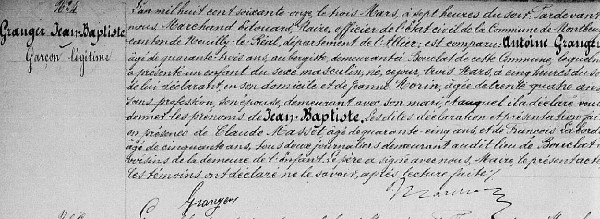 N° 4
Granger Jean-Baptiste
Garçon légitime
L'an mil huit cent soixante onze, le trois Mars, à sept heures du soir, Pardevant
nous Marchand Edouard, Maire, officier de l'Etat civil de la Commune de
canton de Neuilly-le-Réal, département de l'Allier, est comparu Antoine Granger
âgé de quarante trois ans, aubergiste, demeurant à Bouclat de cette Commune, lequel nous
a présenté un enfant du sexe masculin, né, ce jour, trois Mars, à cinq heures du soir
de lui déclarant, en son domicile et de Jeanne Morin, âgée de trente quatre ans
sans profession, son épouse, demeurant avec son mari, et auquel il a déclaré vouloir
donner les prénoms de Jean-Baptiste. Lesdites déclaration et présentation faites
en présence de Claude Masset, âgé de quarante-cinq ans, et de François
âgé de cinquante ans, tous deux journaliers demeurant audit lieu de Bouclat
voisins de la demeure de l'Enfant. Le père a signé avec nous, Maire, le présent acte
les témoins ont déclaré ne le savoir, après lecture faite
Granger